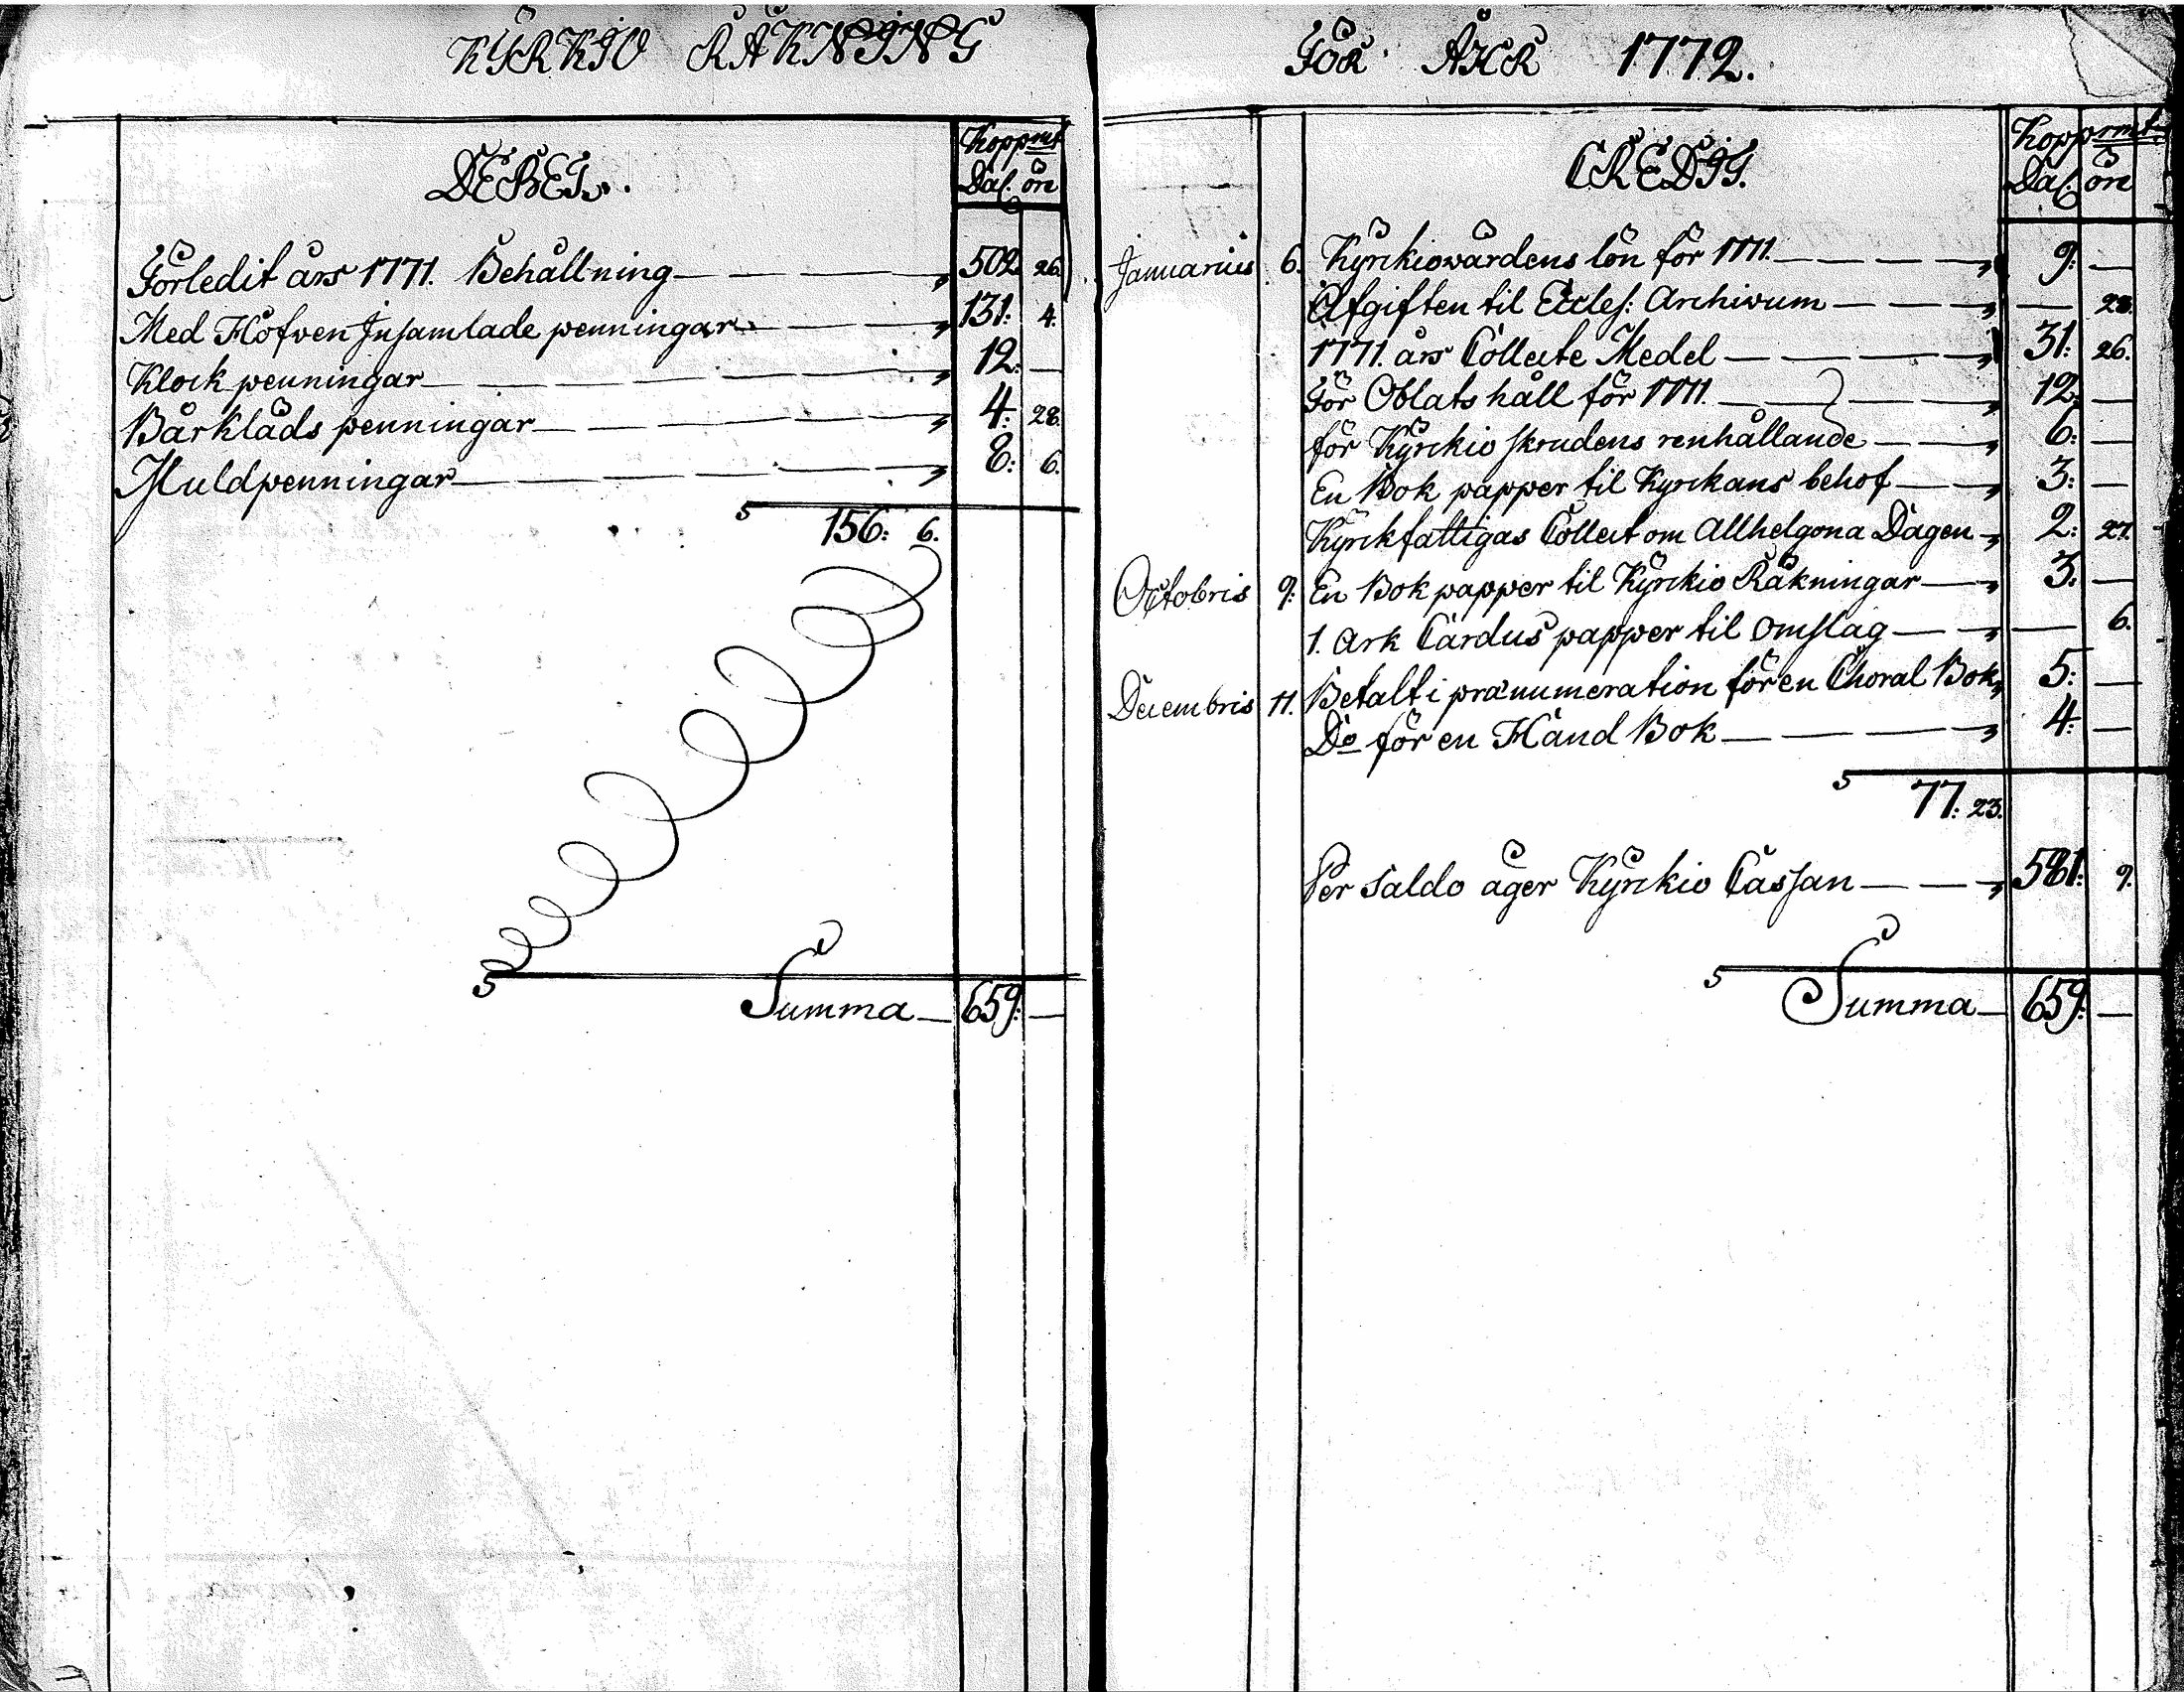 KYRKIO RÄKNING FÖR ÅHR 1772.
DEBET.
Koppmt
Dal. öre
Förledit års 1771. Behållning 502. 26.
Med Håfven Insamlade penningar 131: 4.
Klock penningar 12. —
Bårklåds penningar 4: 28.
Muldpenningar 8: 6.
156: 6.
Summa 659: —
CREDIT.
Kopparmt
Dal. öre
Januarius 6. Kyrkiowärdens lön för 1771. 9: —
Afgiften til Eccles: Archivum — 28.
1771. års Collecte Medel 31: 26.
För Oblats håll för 1771. 12. —
för Kyrkio skrudens renhållande 6: —
En Bok papper til Kyrkans behof 3: —
Kyrkfattigas Collect om Allhelgona Dagen 2: 27.
Octobris 9: En Bok papper til Kyrkio Räkningar 3. —
1. Ark Cardus papper til omslag — 6.
Decembris 11. Betalt i prænumeration för en Choral Bok 5: —
Do för en Hand Bok 4: —
77: 23.
Per Saldo äger Kyrkio Cassan 581: 9.
Summa 659: —